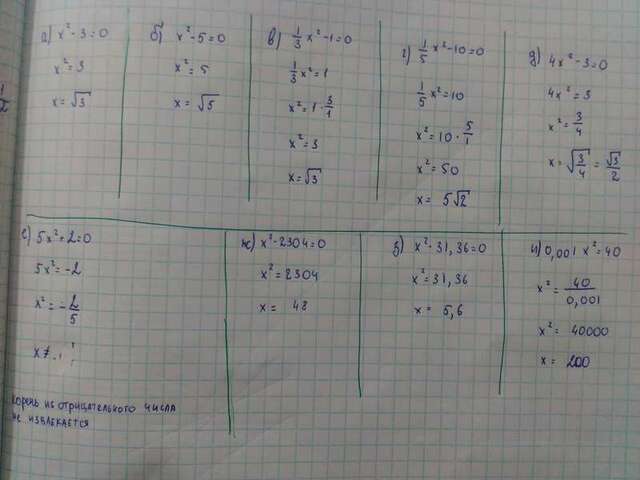 а) x² - 3 = 0
x² = 3
x = √3
б) x² - 5 = 0
x² = 5
x = √5
в) 1/3 x² - 1 = 0
1/3 x² = 1
x² = 1 · 3/1
x² = 3
x = √3
г) 1/5 x² - 10 = 0
1/5 x² = 10
x² = 10 · 5/1
x² = 50
x = 5√2
д) 4x² - 3 = 0
4x² = 3
x² = 3/4
x = √3/4 = √3/2
е) 5x² + 2 = 0
5x² = -2
x² = -2/5
x ≠
корень из отрицательного числа
не извлекается
ж) x² - 2304 = 0
x² = 2304
x = 48
з) x² - 31,36 = 0
x² = 31,36
x = 5,6
и) 0,001 x² = 40
x² = 40/0,001
x² = 40000
x = 200
1/2